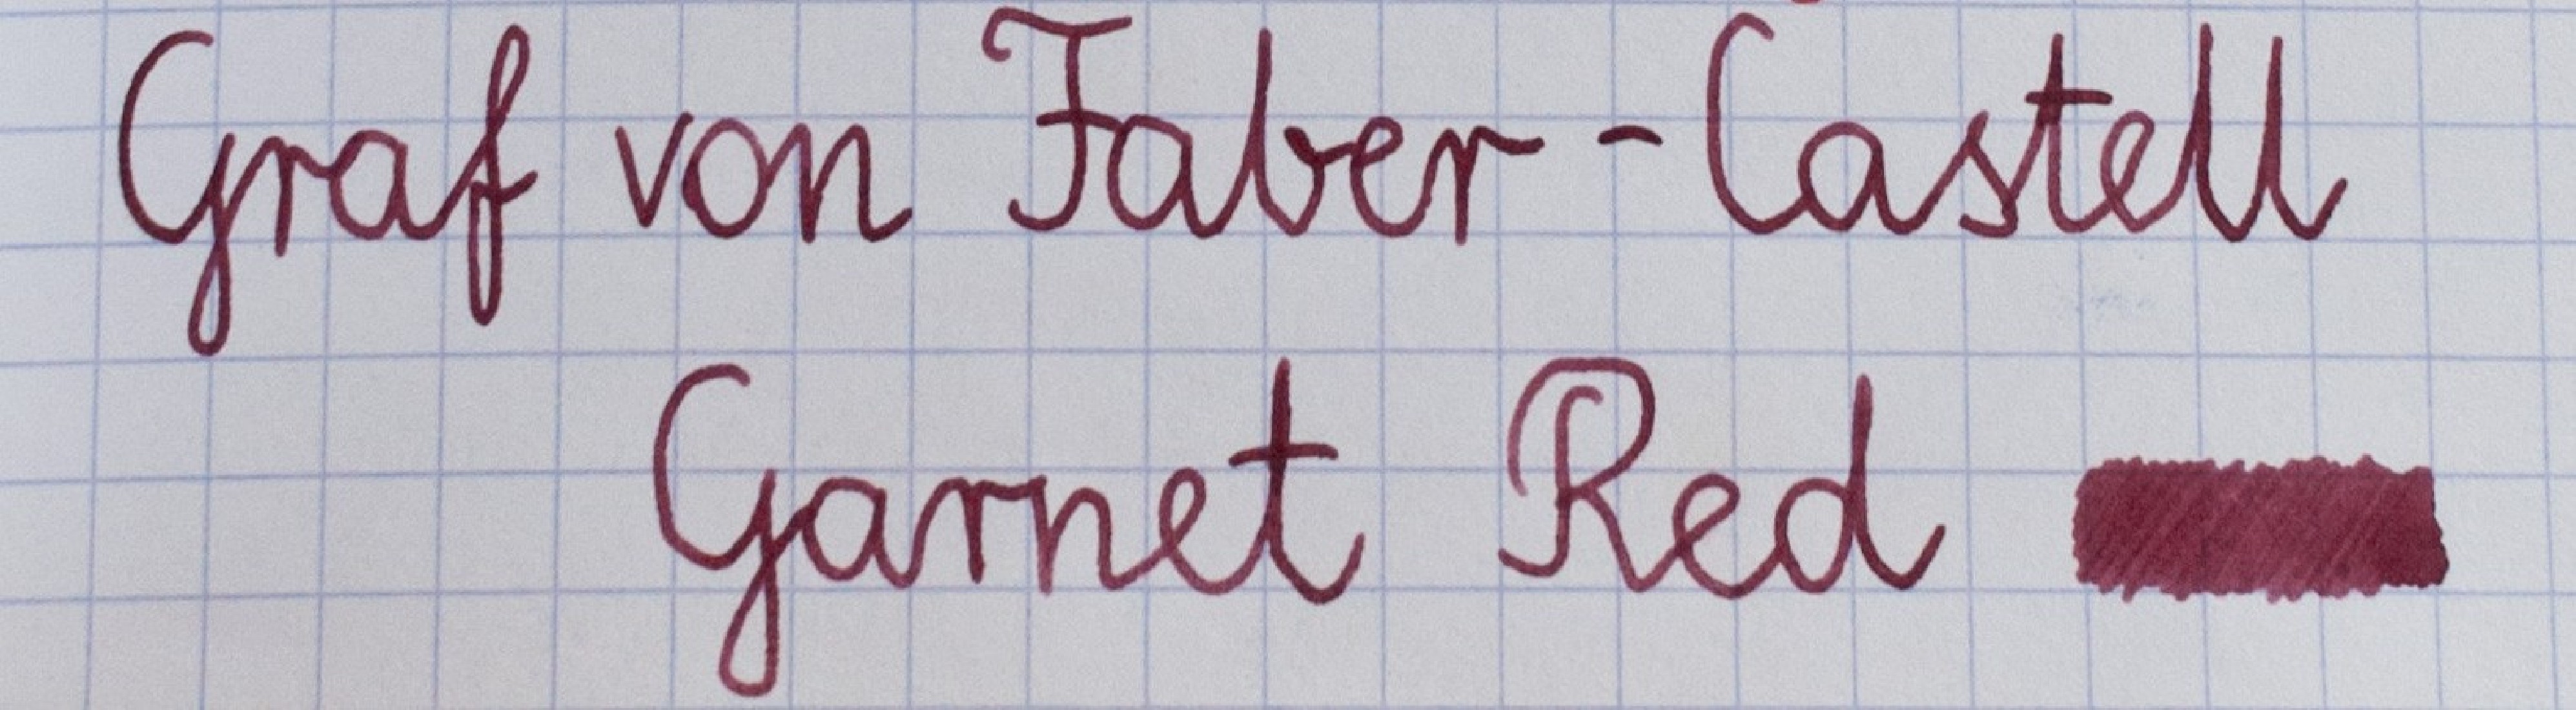 Graf von Faber-Castell
Garnet Red